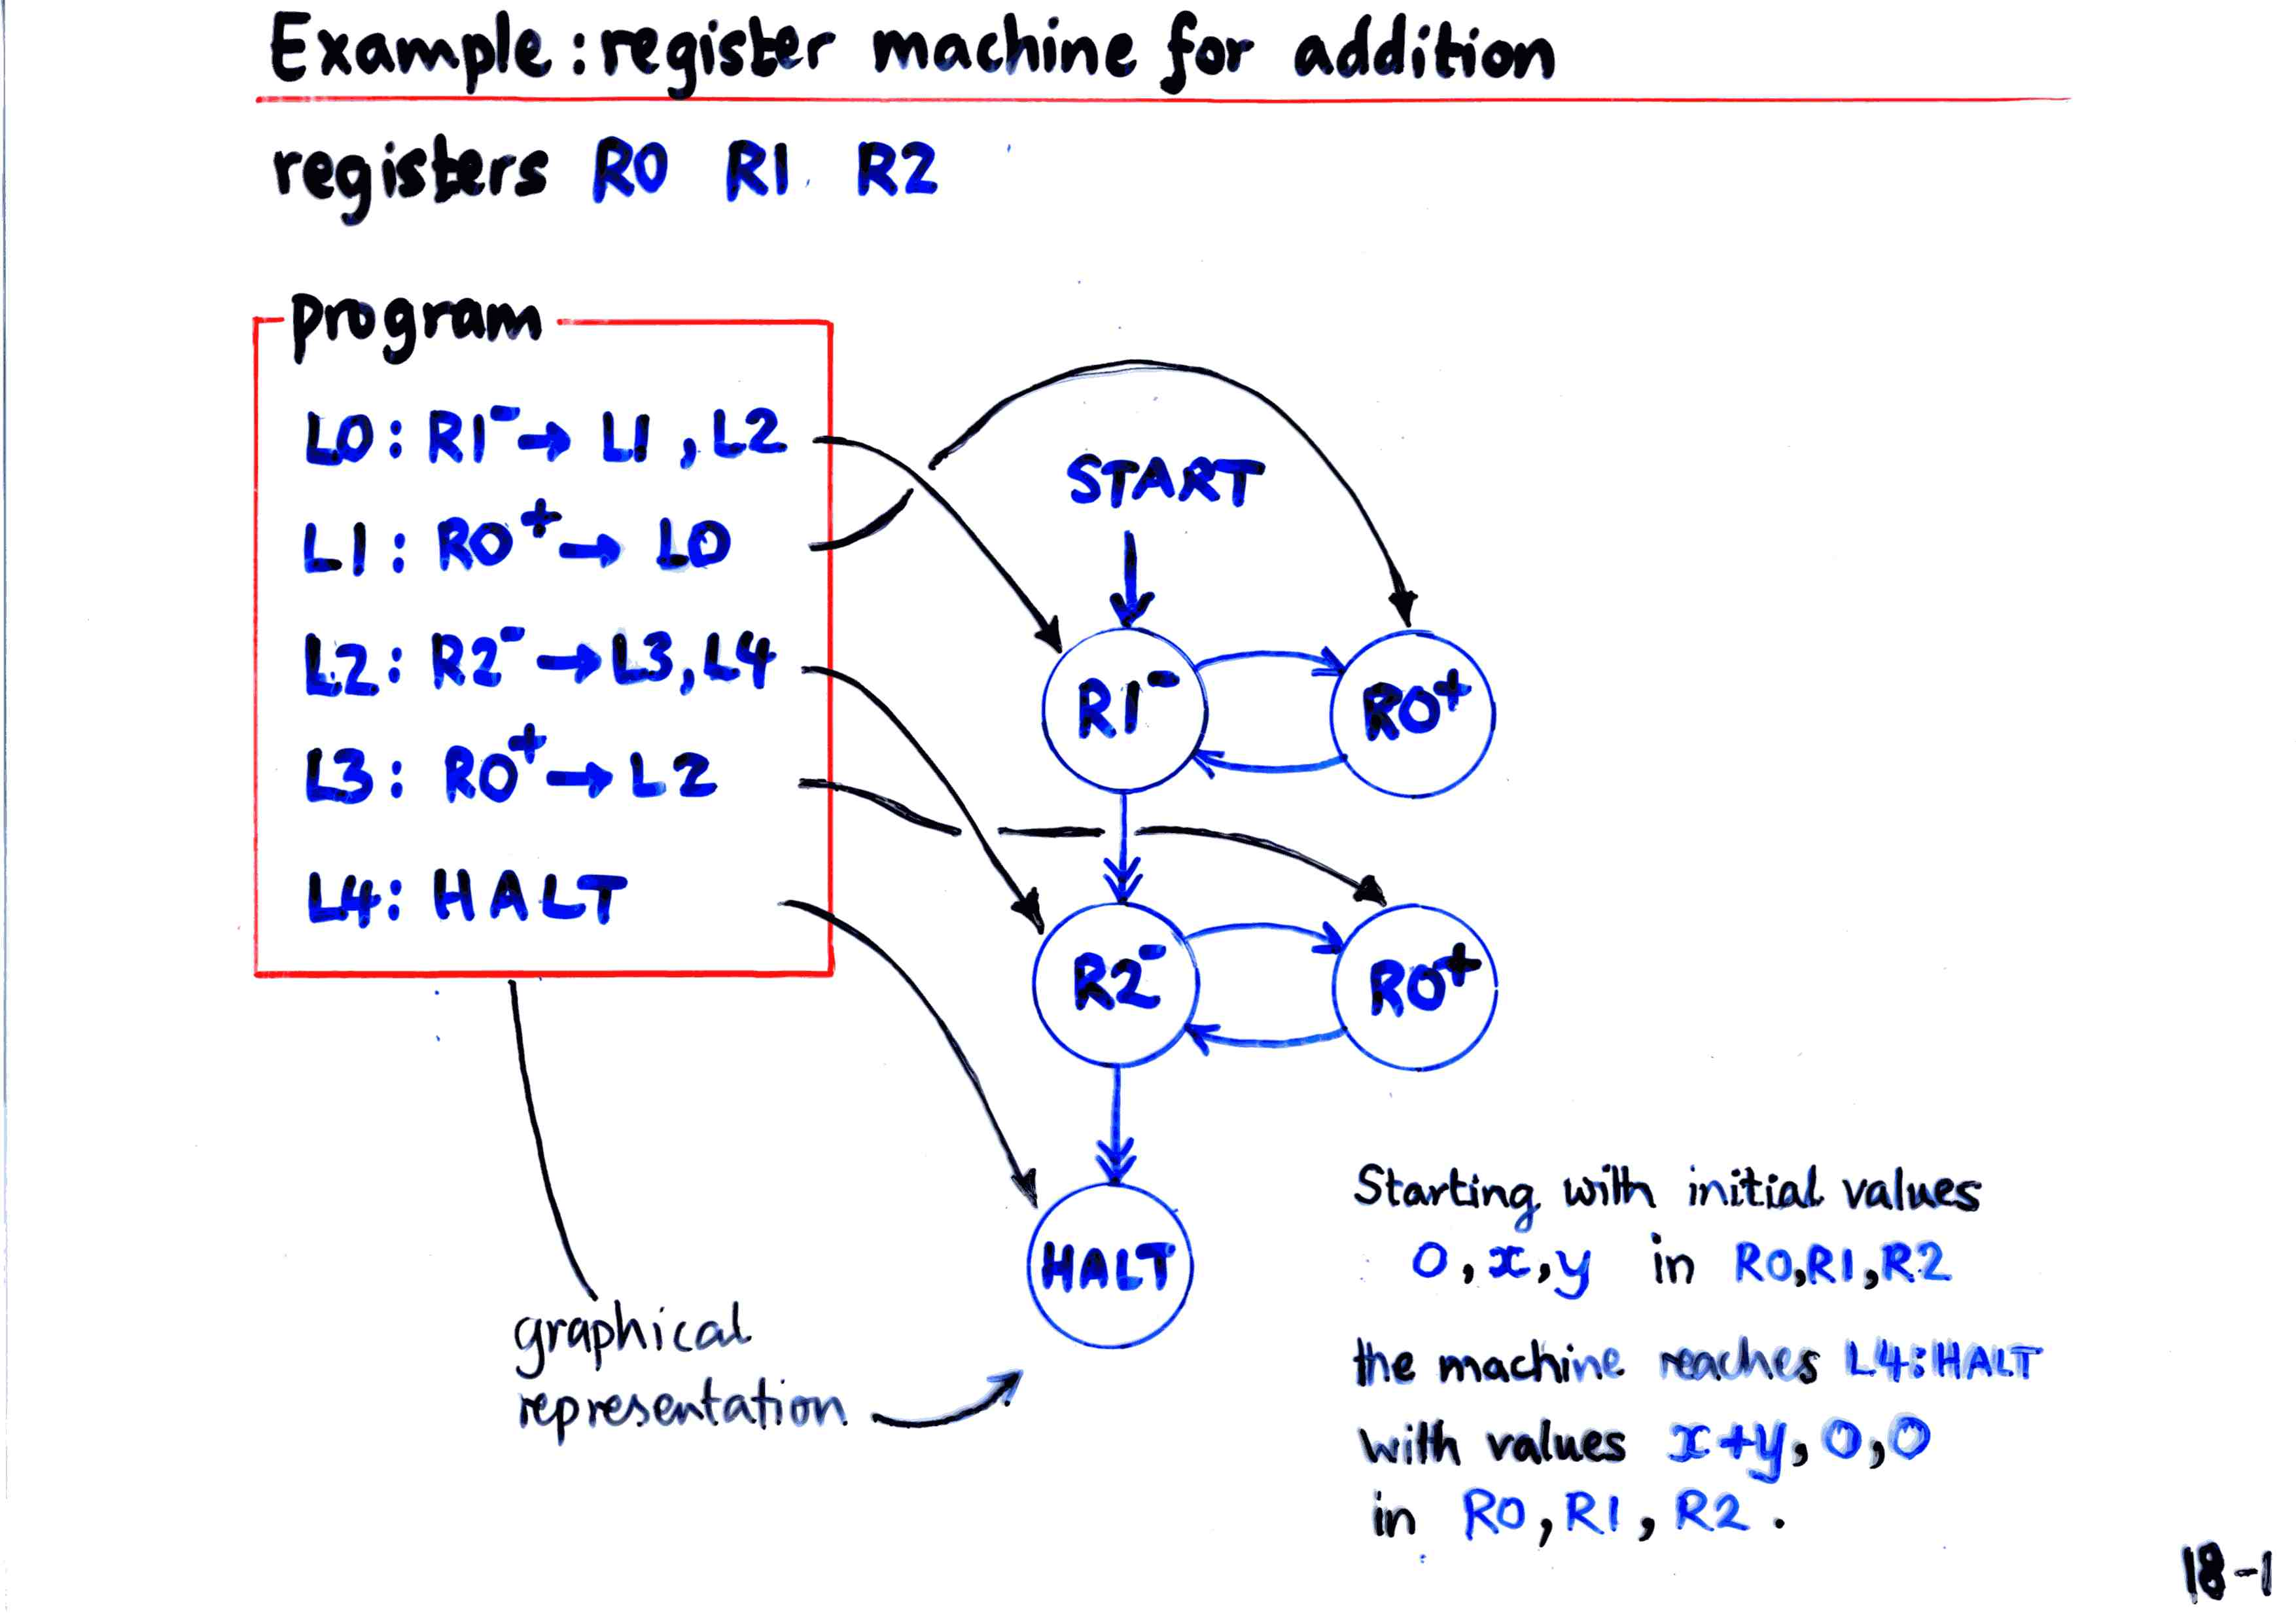 Example: register machine for addition
registers R0 R1 R2
program
L0: R1⁻ → L1, L2
L1: R0⁺ → L0
L2: R2⁻ → L3, L4
L3: R0⁺ → L2
L4: HALT
START
R1⁻
R0⁺
R2⁻
R0⁺
HALT
graphical
representation
Starting with initial values
0, x, y in R0, R1, R2
the machine reaches L4: HALT
with values x+y, 0, 0
in R0, R1, R2.
18-1